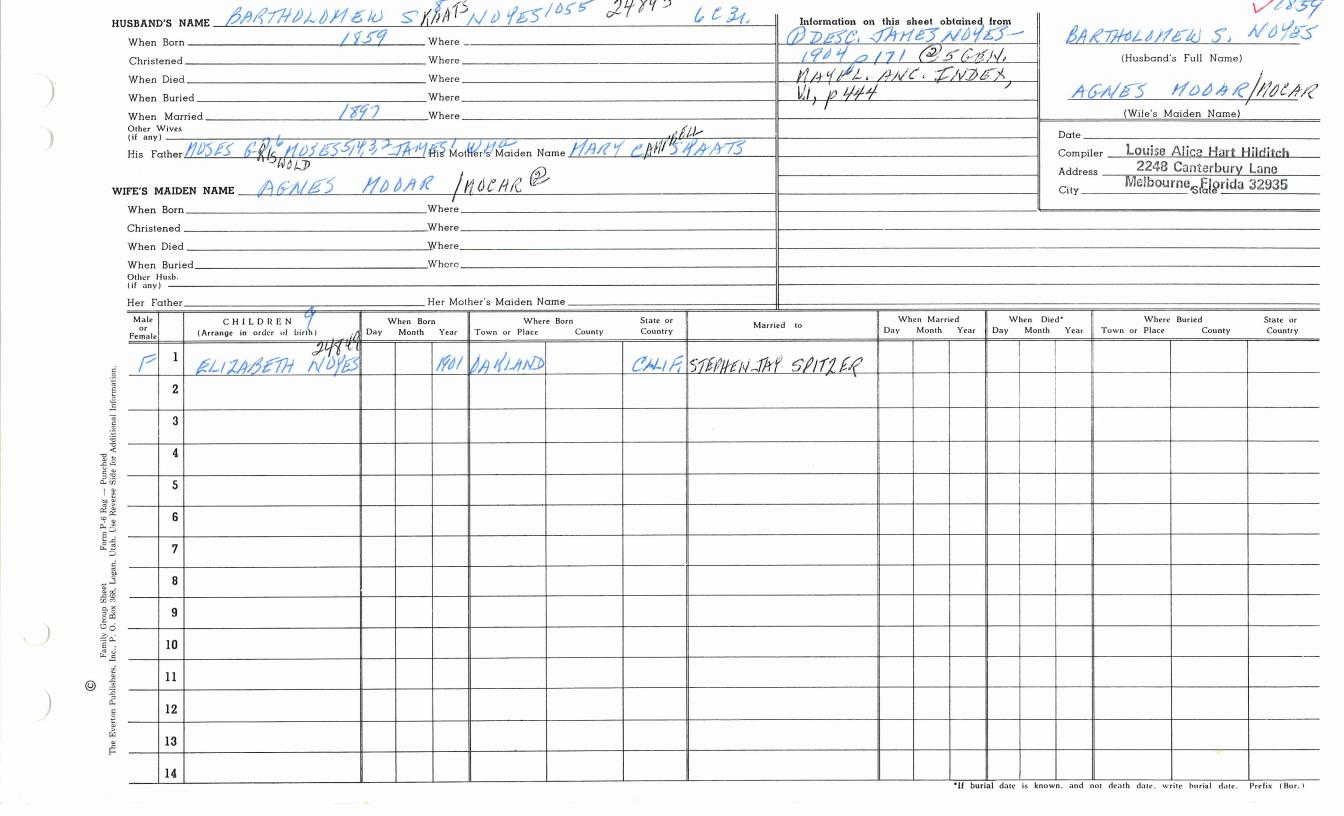 HUSBAND'S NAME BARTHOLOMEW SKAATS NOYES 1055
When Born 1859 Where
Christened Where
When Died Where
When Buried Where
When Married 1897 Where
Other Wives
(if any)
His Father MOSES GRISWOLD MOSES 5,4,3,2 JAMES WM His Mother's Maiden Name MARY CAMPBELL SKAATS
WIFE'S MAIDEN NAME AGNES MODAR / MOCAR ②
When Born Where
Christened Where
When Died Where
When Buried Where
Other Husb.
(if any)
Her Father Her Mother's Maiden Name
Information on this sheet obtained from
① DESC. JAMES NOYES-
1904 p 171 ② 5 GEN.
MAYFL. ANC. INDEX,
V.1, p 444
1859
BARTHOLOMEW S. NOYES
(Husband's Full Name)
AGNES MODAR/MOCAR
(Wife's Maiden Name)
Date
Compiler Louise Alice Hart Hilditch
Address 2248 Canterbury Lane
City Melbourne, Florida 32935
State
Male or Female
CHILDREN 9
(Arrange in order of birth)
When Born
Day Month Year
Where Born
Town or Place County
State or Country
Married to
When Married
Day Month Year
When Died*
Day Month Year
Where Buried
Town or Place County
State or Country
24849
F 1 ELIZABETH NOYES 1901 OAKLAND CALIF. STEPHEN JAY SPITZER
2
3
4
5
6
7
8
9
10
11
12
13
14
*If burial date is known, and not death date, write burial date. Prefix (Bur.)
© Family Group Sheet Form P-6 Rag — Punched
The Everton Publishers, Inc., P. O. Box 368, Logan, Utah. Use Reverse Side for Additional Information.